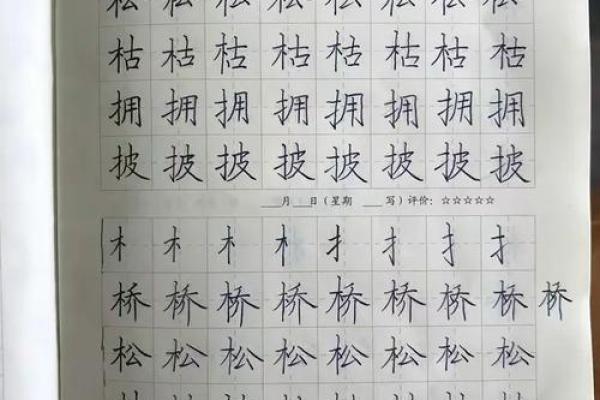 松松松松松松松松
枯枯枯枯枯枯枯枯
拥拥拥拥拥拥拥拥
披披披披披披披披
___月___日（星期 ___写）评价：☆☆☆☆☆
木木木木扌扌扌扌
桥桥桥桥桥桥桥桥桥
松松松松松松松松